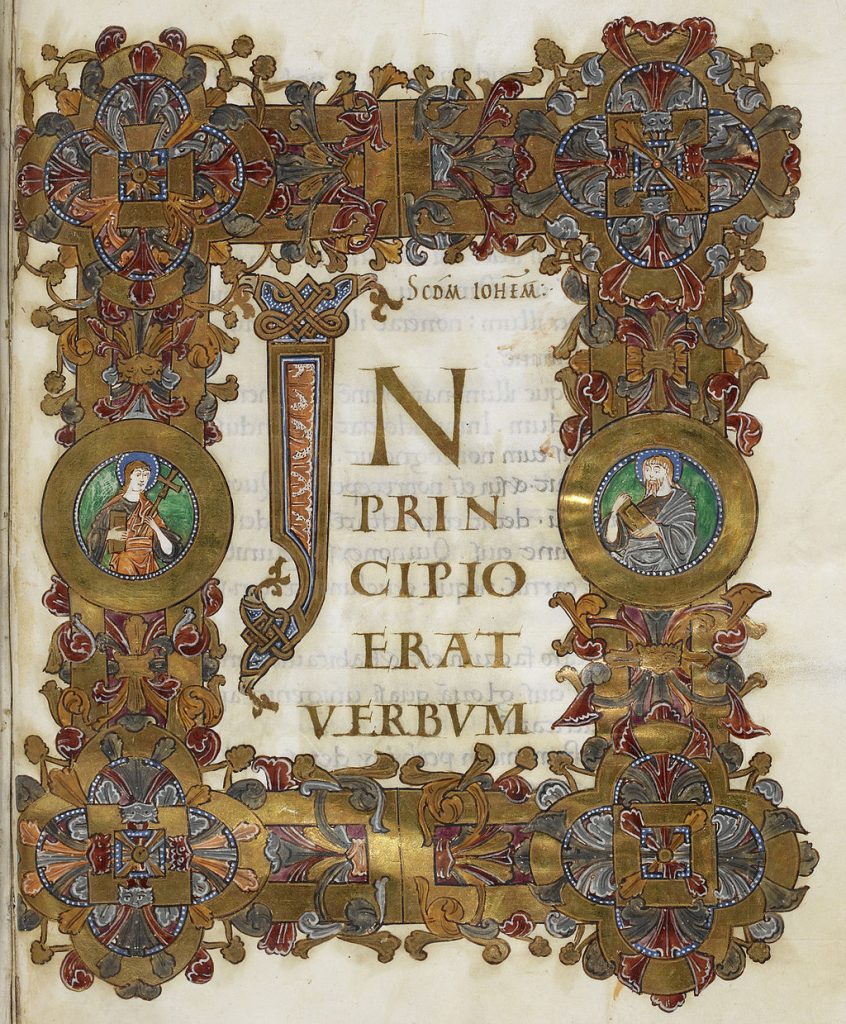 SCDM IOHEM:
IN
PRIN
CIPIO
ERAT
VERBVM